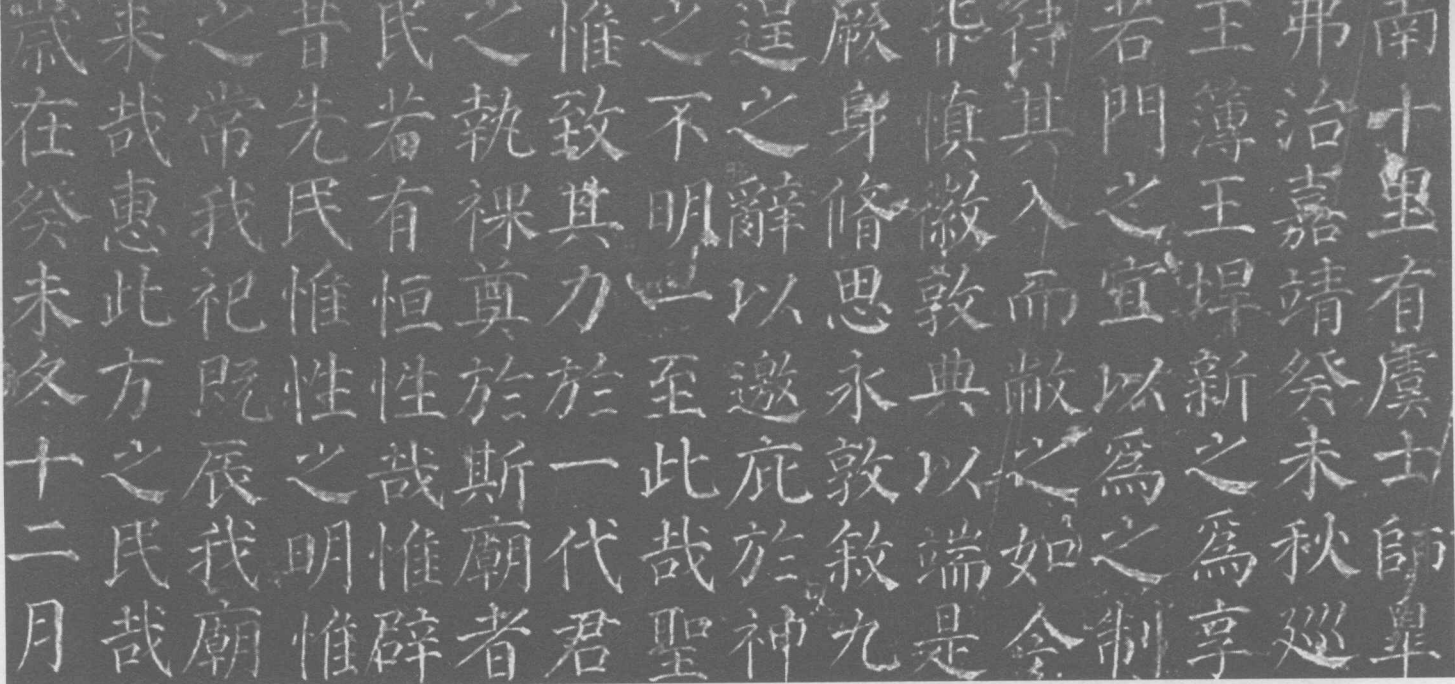 南十里有虞士師皐
弗治嘉靖癸未秋廵
主簿王垾新之爲享
若門之宜以爲之制
待其入而敝之如
非慎徽敦典以端是
厥身脩思永敦敘九
逞之辭以邀庇於神
之不明一至此哉聖
惟致其力於一代君
之執祼奠於斯廟者
民若有恒性哉惟辟
昔先民惟性之明惟
之常我祀既辰我廟
来哉惠此方之民哉
歲在癸未冬十二月